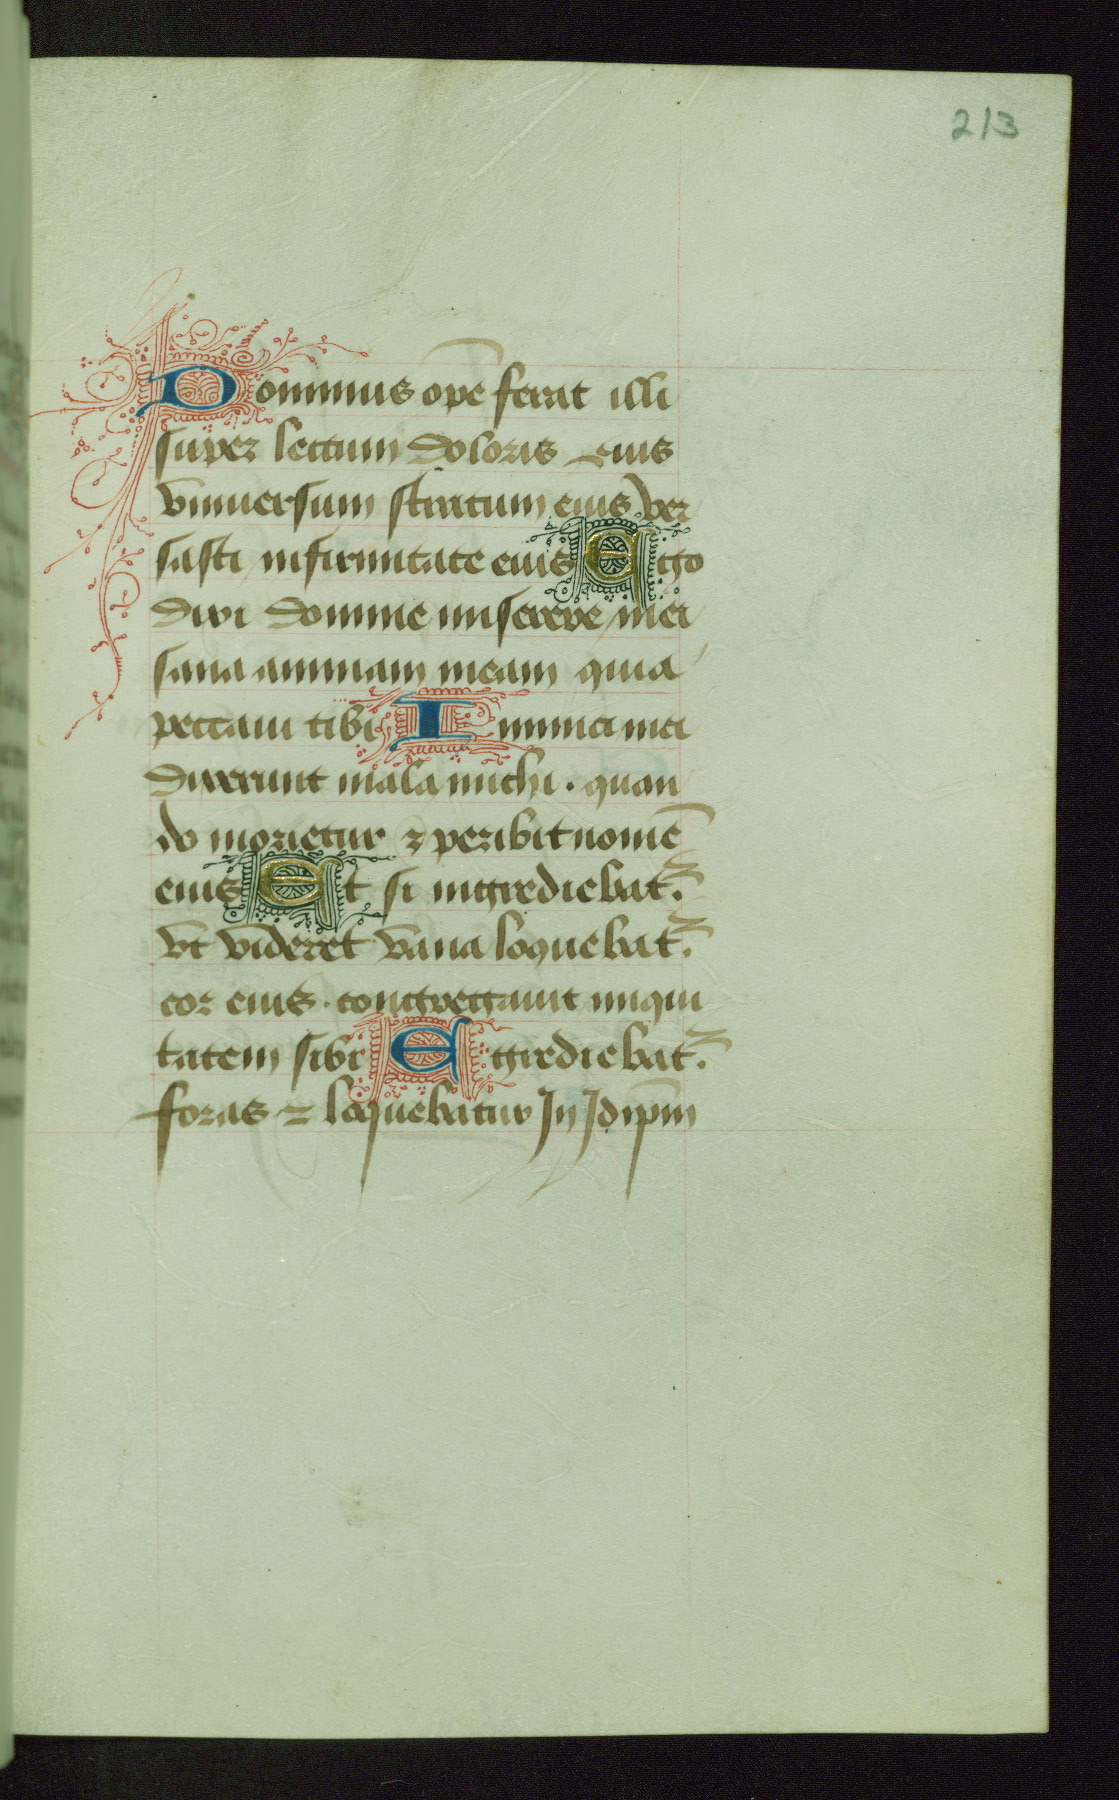 213
Dominus opē ferat illi
super lectum doloris eius
vniuersum stratum eius ver
sasti infirmitate eius Ego
dixi domine miserere mei
sana animam meam quia
peccaui tibi Inimici mei
dixerunt mala michi · quan
do morietur ⁊ peribit nomē
eius Et si ingrediebat᷑
vt videret vana loquebat᷑
cor eius · congregauit iniqui
tatem sibi Egrediebat᷑
foras ⁊ loquebatur In Idip̄m